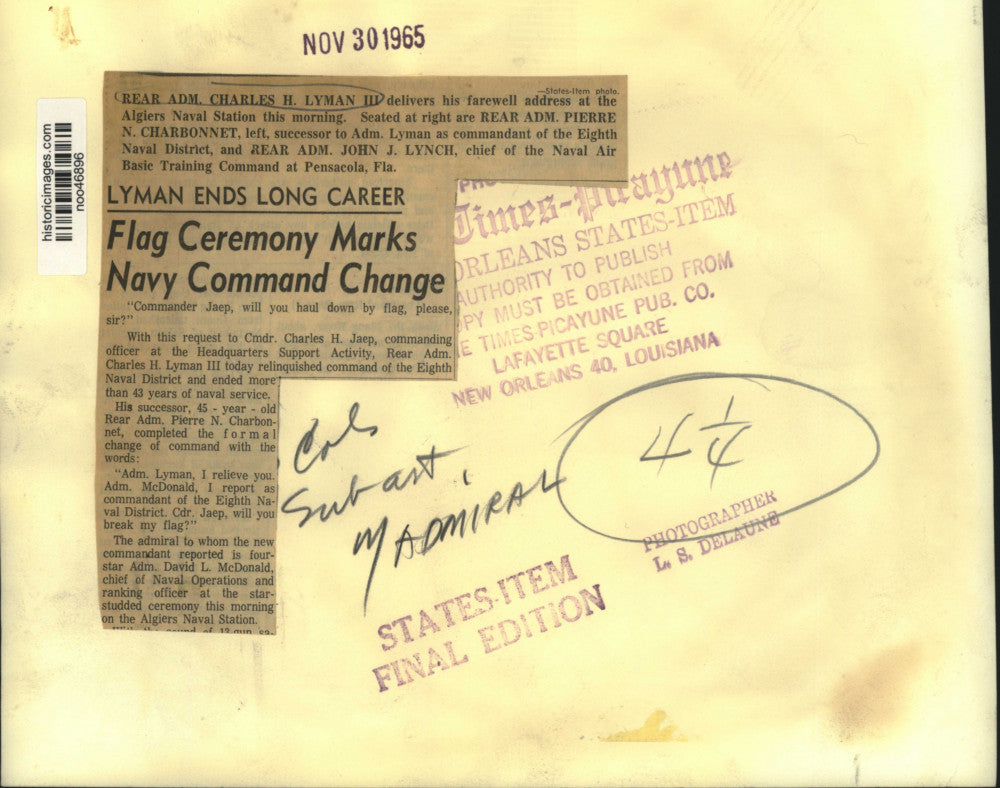 NOV 30 1965
historicimages.com
noo46896
—States-Item photo.
REAR ADM. CHARLES H. LYMAN III delivers his farewell address at the
Algiers Naval Station this morning. Seated at right are REAR ADM. PIERRE
N. CHARBONNET, left, successor to Adm. Lyman as commandant of the Eighth
Naval District, and REAR ADM. JOHN J. LYNCH, chief of the Naval Air
Basic Training Command at Pensacola, Fla.
LYMAN ENDS LONG CAREER
Flag Ceremony Marks
Navy Command Change
"Commander Jaep, will you haul down by flag, please,
sir?"
With this request to Cmdr. Charles H. Jaep, commanding
officer at the Headquarters Support Activity, Rear Adm.
Charles H. Lyman III today relinquished command of the Eighth
Naval District and ended more
than 43 years of naval service.
His successor, 45 - year - old
Rear Adm. Pierre N. Charbon-
net, completed the formal
change of command with the
words:
"Adm. Lyman, I relieve you.
Adm. McDonald, I report as
commandant of the Eighth Na-
val District. Cdr. Jaep, will you
break my flag?"
The admiral to whom the new
commandant reported is four-
star Adm. David L. McDonald,
chief of Naval Operations and
ranking officer at the star-
studded ceremony this morning
on the Algiers Naval Station.
With the sound of 13-gun sa-
PHO
Times-Picayune
ORLEANS STATES-ITEM
AUTHORITY TO PUBLISH
PY MUST BE OBTAINED FROM
E TIMES-PICAYUNE PUB. CO.
LAFAYETTE SQUARE
NEW ORLEANS 40, LOUISIANA
4 1/4
Sub art.
ADMIRAL
PHOTOGRAPHER
L. S. DELAUNE
STATES-ITEM
FINAL EDITION